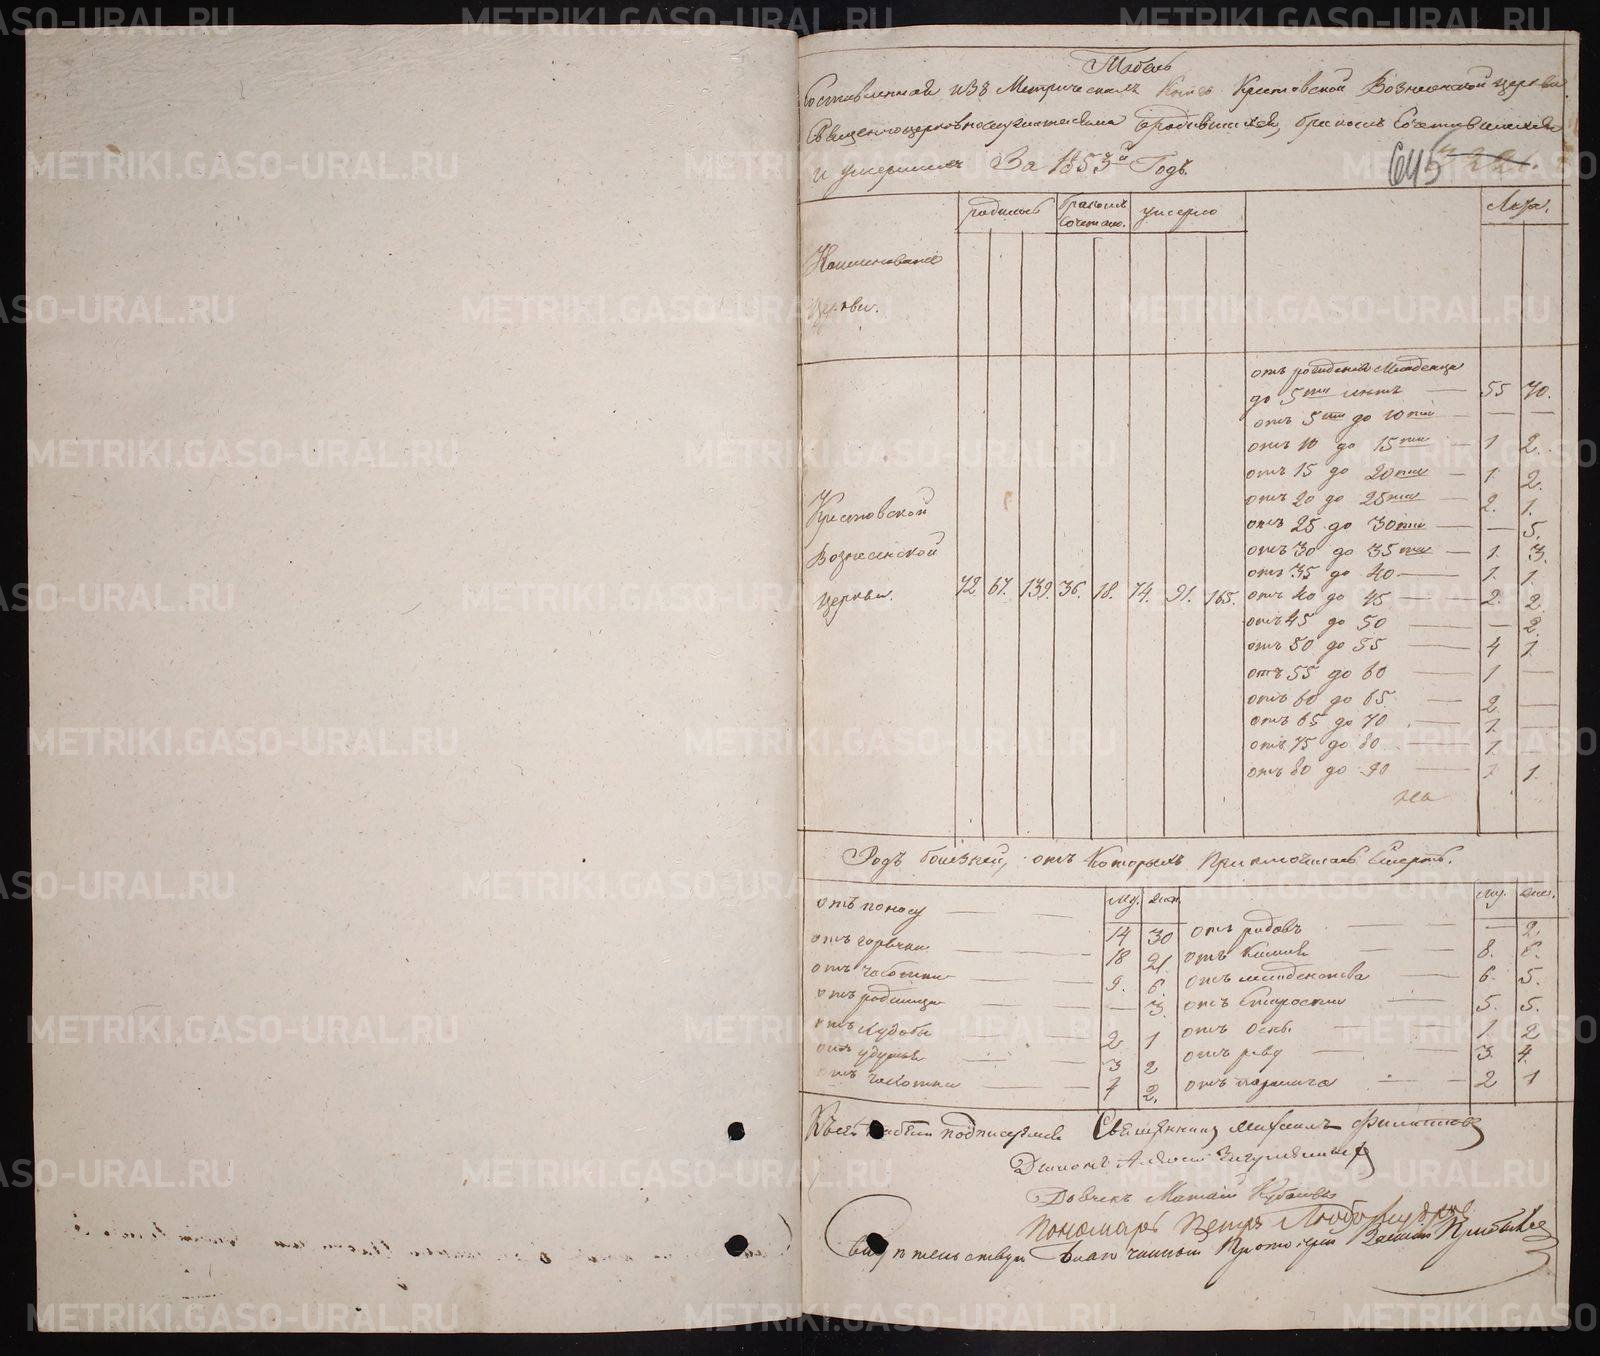 Табель
Составленная изъ Метрическихъ Книгъ Крестовской Вознесенской церкви
Священноцерковнослужителями о родившихся, бракомъ Сочетавшихся
и умершихъ За 1853й Годъ.
645
Наименованiе церкви.
родилось
бракомъ Сочетано.
умерло
Лѣта.
отъ рожденiя Младенца
до 5ти лѣтъ — 55 70.
отъ 5ти до 10ти — — —
отъ 10 до 15ти — 1 2.
отъ 15 до 20ти — 1. 2.
отъ 20 до 25ти — 2. 1.
отъ 25 до 30ти — — 5.
отъ 30 до 35ти — 1. 3.
отъ 35 до 40 — 1. 1.
отъ 40 до 45 — 2. 2.
отъ 45 до 50 — — 2.
отъ 50 до 55 — 4 1.
отъ 55 до 60 — 1 —
отъ 60 до 65 — 2. —
отъ 65 до 70 — 1. —
отъ 75 до 80 — 1. —
отъ 80 до 90 — 1 1.
Крестовской
Вознесенской
церкви. 72 67. 139. 36. 18. 74. 91. 165.
Родъ болезней, отъ Которыхъ Приключилась Смерть.
му. жен. му. жен.
отъ поносу — 14 30 отъ родовъ — — 2.
отъ горячки — 18 21. отъ Кашля — 8. 6.
отъ чахотки — 9. 6. отъ младенчества — 6. 5.
отъ родимца — — 3. отъ Старости — 5. 5.
отъ худобы — 2 1 отъ оспы. — 1. 2
отъ удушья — 3 2 отъ рѣву — 3. 4.
2. 2 1
Къ сей табели подписуемся Священникъ Михаилъ Филиппов
Дiаконъ Алексей
Дьячекъ Матвiй
Пономарь Петръ Любомудров
Свидетельствую Благочинный Протоиерей
METRIKI.GASO-URAL.RU